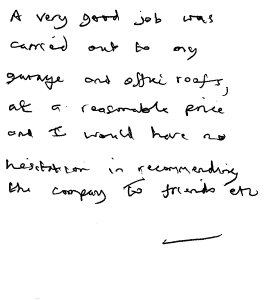 A very good job was
carried out to my
garage and office roofs,
at a reasonable price
and I would have no
hesitation in recommending
the company to friends etc